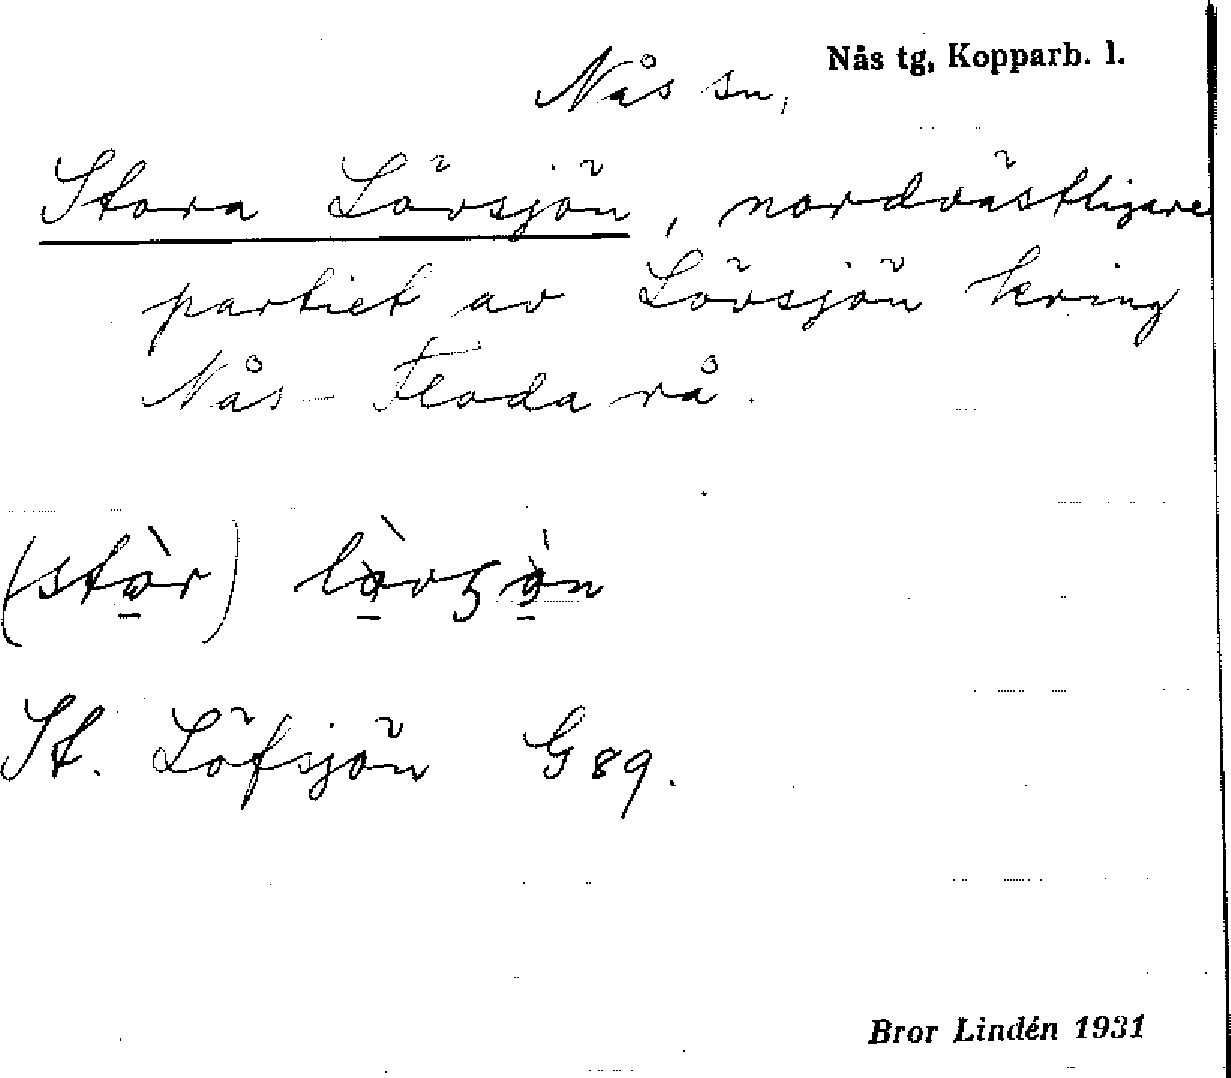 Nås tg, Kopparb. l.
Nås sn,
Stora Lövsjön, nordvästligare
partiet av Lövsjön kring
Nås-Floda rå.
(stòr)
St. Löfsjön G 89.
Bror Lindén 1931